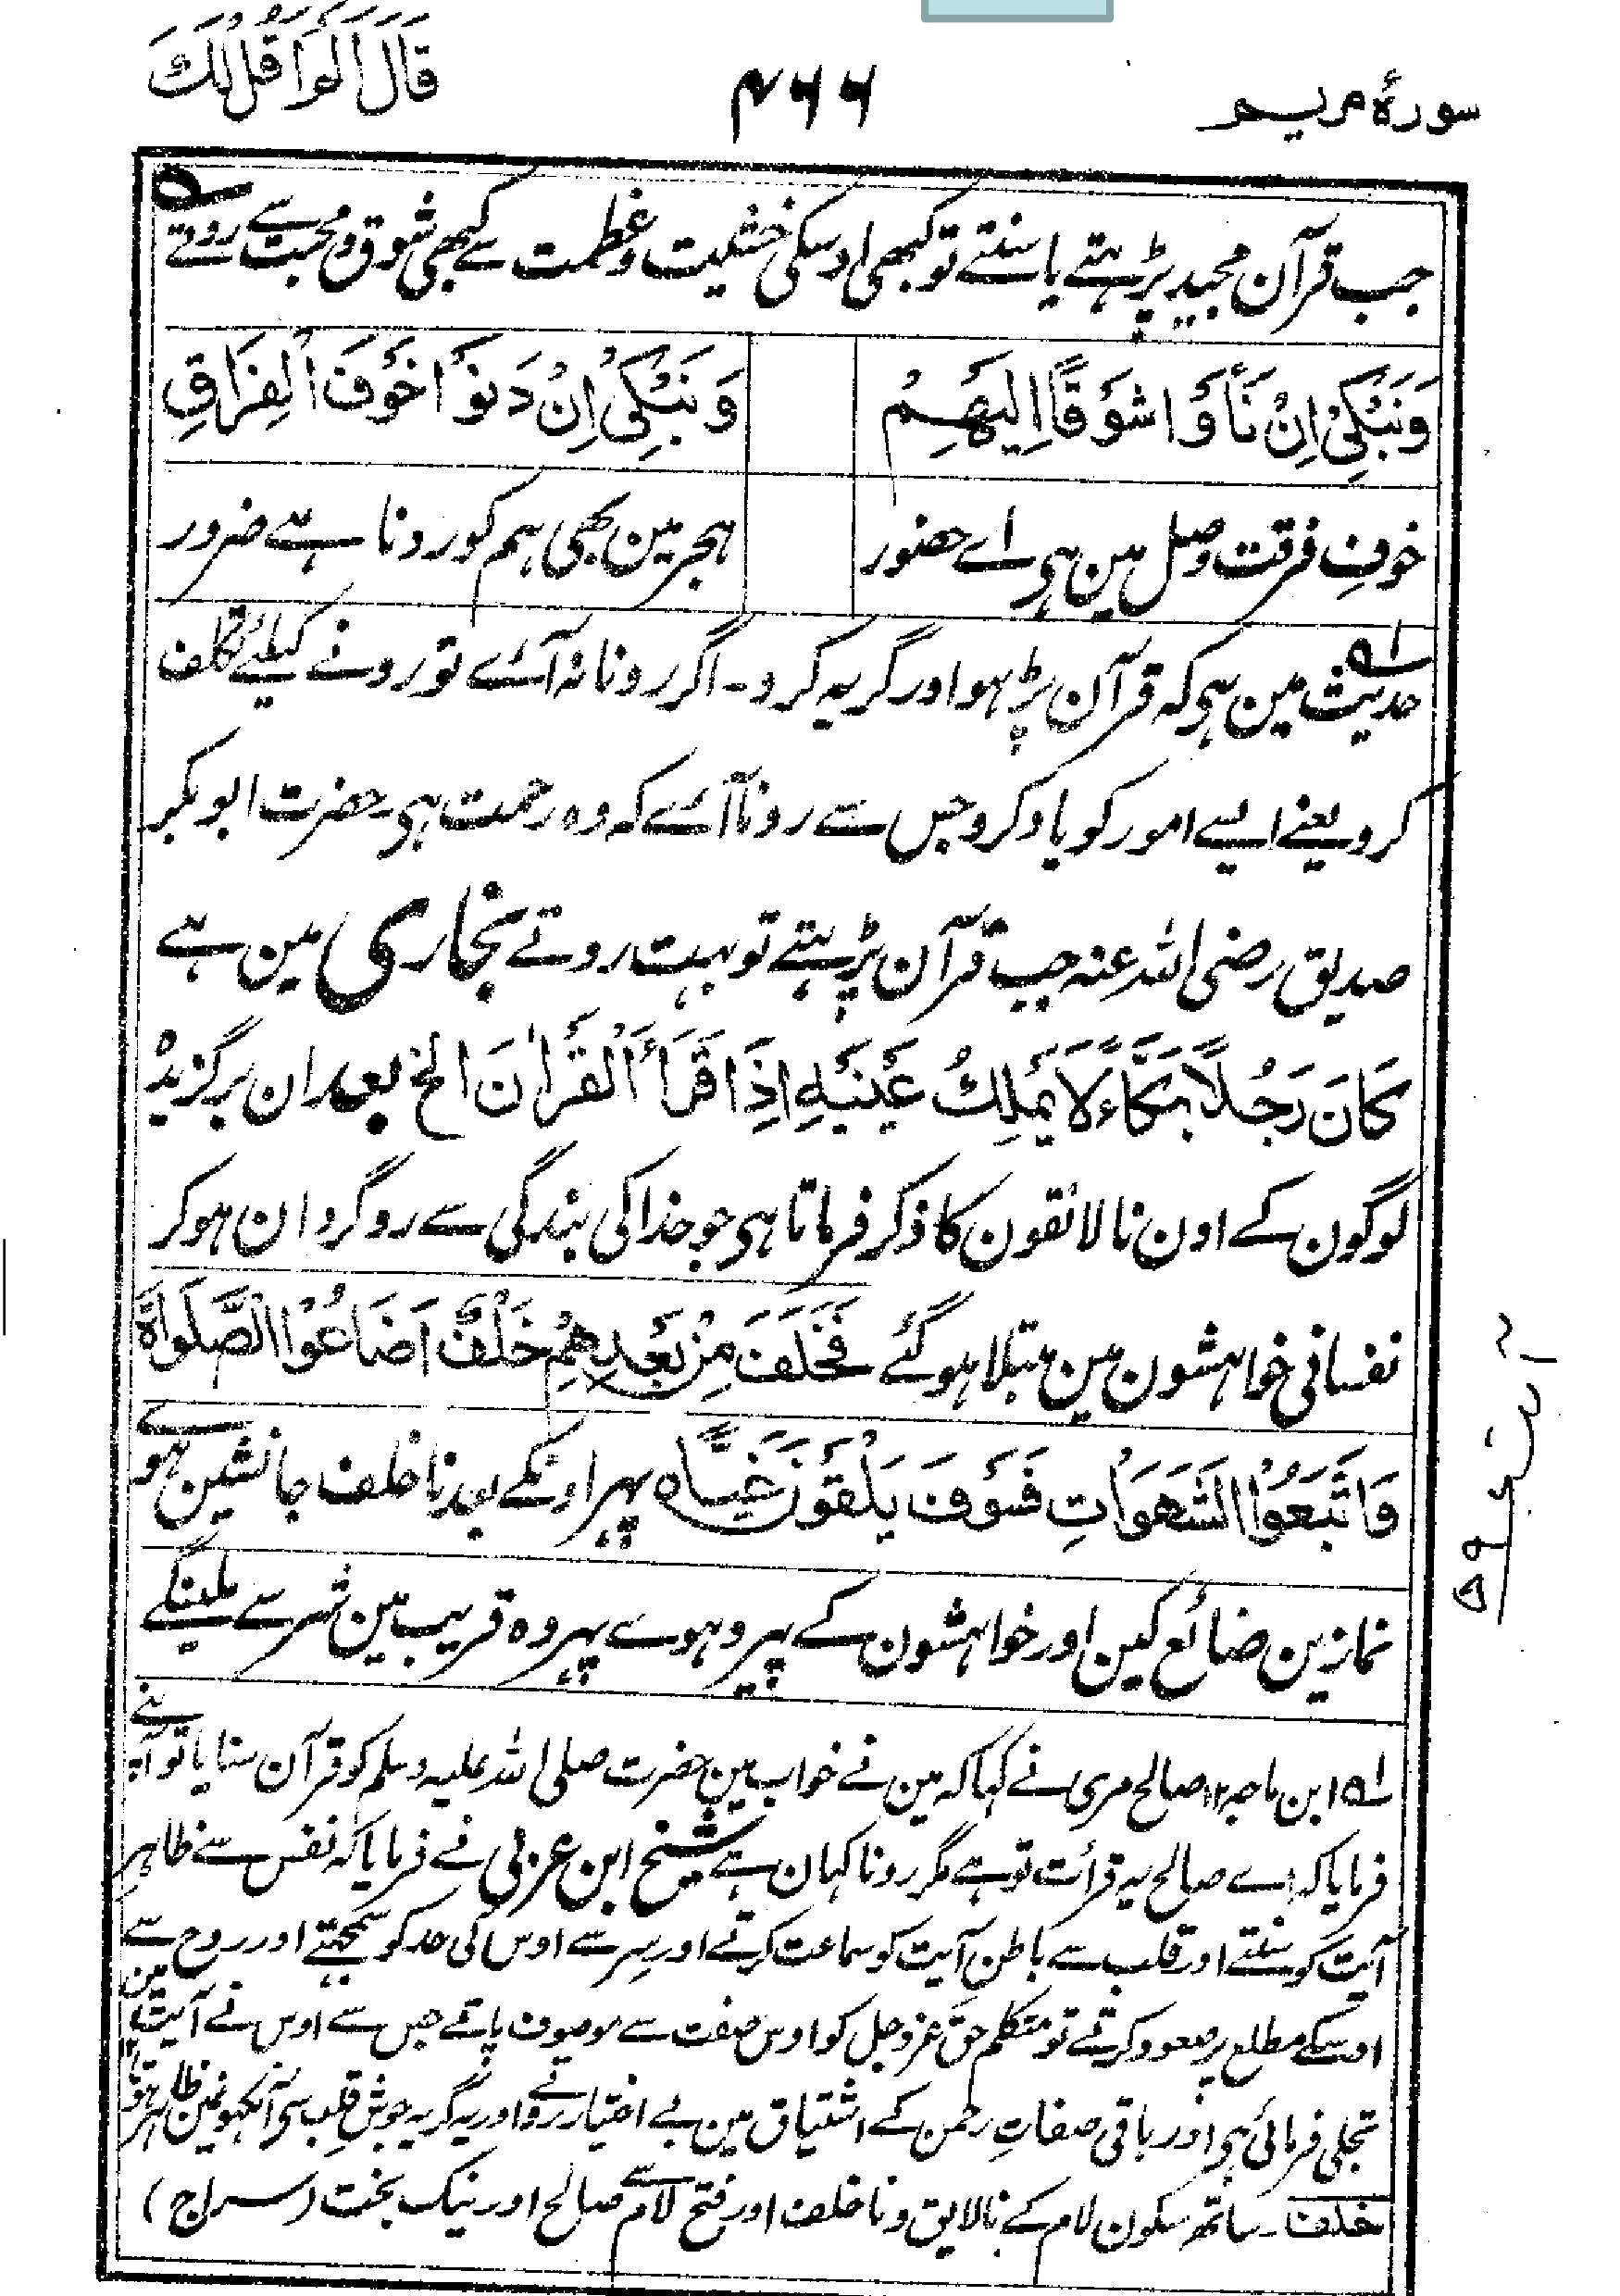 سورۂ مریم
۴۶۶
قَالَ اَلَمْ اَقُلْ لَّكَ
جب قرآن مجید پڑہتے یا سنتے تو کبھی اوسکی خشیت و عظمت سے کبھی شوق و محبت سے روتے
وَنَبْكِيْ اِنْ نَأَوْا شَوْقًا اِلَيْهِمْ
وَنَبْكِيْ اِنْ دَنَوْا خَوْفَ الْفِرَاقِ
خوفِ فرقت وصل مین ہی اے حضور
ہجر مین بھی ہم کو رونا ہے ضرور
حدیث مین ہی کہ قرآن پڑہو اور گریہ کرو۔ اگر رونا نہ آئے تو رونے کیلئے تکلف
کرو یعنے ایسے امور کو یاد کرو جس سے رونا آئے کہ وہ رحمت ہی حضرت ابو بکر
صدیق رضی اللہ عنہ جب قرآن پڑہتے تو بہت روتے بخاری مین ہے
كَانَ رَجُلًا بَكَّاءً لَا يَمْلِكُ عَيْنَيْهِ اِذَا قَرَأَ الْقُرْاٰنَ الخ بعد ان برگزیدہ
لوگون کے اون نالائقون کا ذکر فرماتا ہی جو خدا کی بندگی سے روگردان ہوکر
نفسانی خواہشون مین مبتلا ہوگئے فَخَلَفَ مِنْ بَعْدِهِمْ خَلْفٌ اَضَاعُوا الصَّلَوٰةَ
وَاتَّبَعُوا الشَّهَوَاتِ فَسَوْفَ يَلْقَوْنَ غَيًّا ہ پہر اونکے بعد ناخلف جانشین ہوے
آیت ۵۹
نمازین ضائع کین اور خواہشون کے پیرو ہوے پہر وہ قریب مین شر سے ملینگے
لہ ابن ماجہ ۱۲ صالح مری نے کہا کہ مین نے خواب مین حضرت صلی اللہ علیہ وسلم کو قرآن سنایا تو آپنے
فرمایا کہ اے صالح یہ قرأت تو ہے مگر رونا کہان ہے شیخ ابن عربی نے فرمایا کہ نفس سے ظاہر
آیت کو سنتے اور قلب سے باطن آیت کو سماعت کرتے اور سِر سے اوس کی حد کو سمجھتے اور روح سے
اوسکے مطلع پر صعود کرتے تو متکلم حق عزوجل کو اوس صفت سے موصوف پاتے جس سے اوس نے آیت مین
تجلی فرمائی ہی اور باقی صفاتِ رحمن کے اشتیاق مین بے اختیار روتے اور یہ گریہ جوشِ قلب سی آنکھونمین ظاہر ہوتا
خلف۔ ساتھ سکون لام کے نالایق و ناخلف اور فتح لام سے صالح اور نیک بخت (سراج)